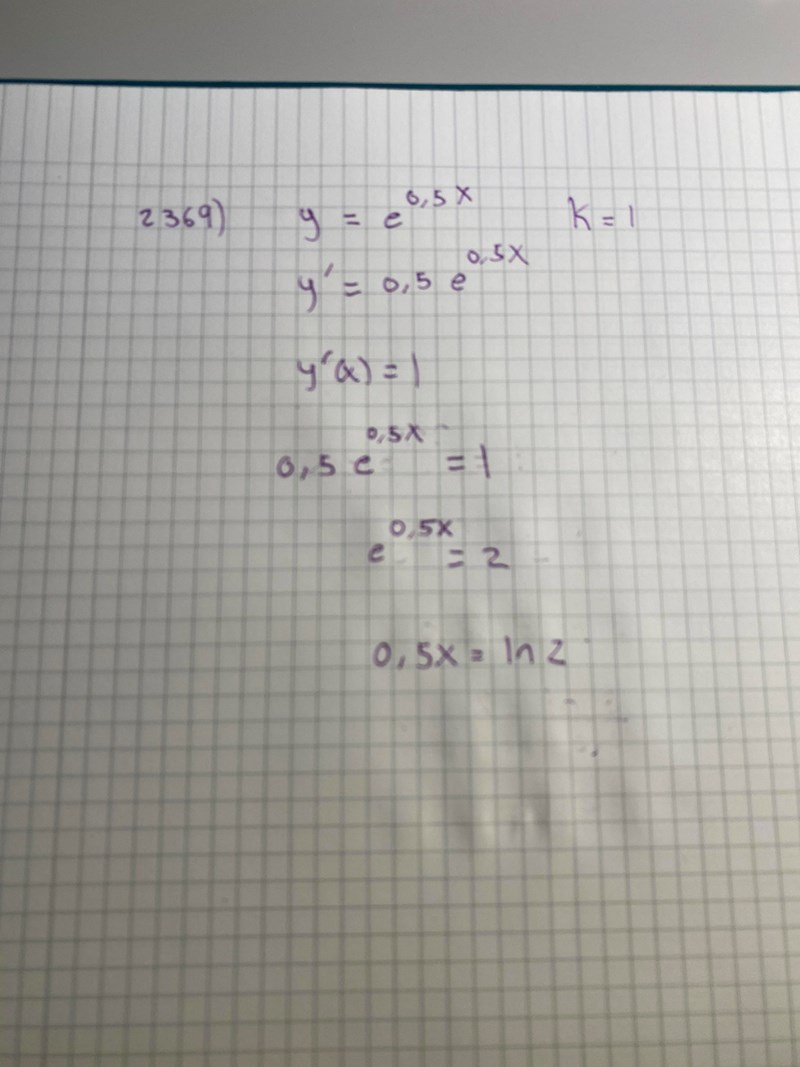 2369) y = e^0,5x K = 1
y' = 0,5 e^0,5x
y'(x) = 1
0,5 e^0,5x = 1
e^0,5x = 2
0,5x = ln 2